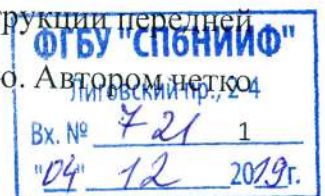 трукции передней
ФГБУ "СПбНИИФ"
о. Автором четко
Лиговский пр., 2-4
Вх. № 721 1
"04" 12 2019г.